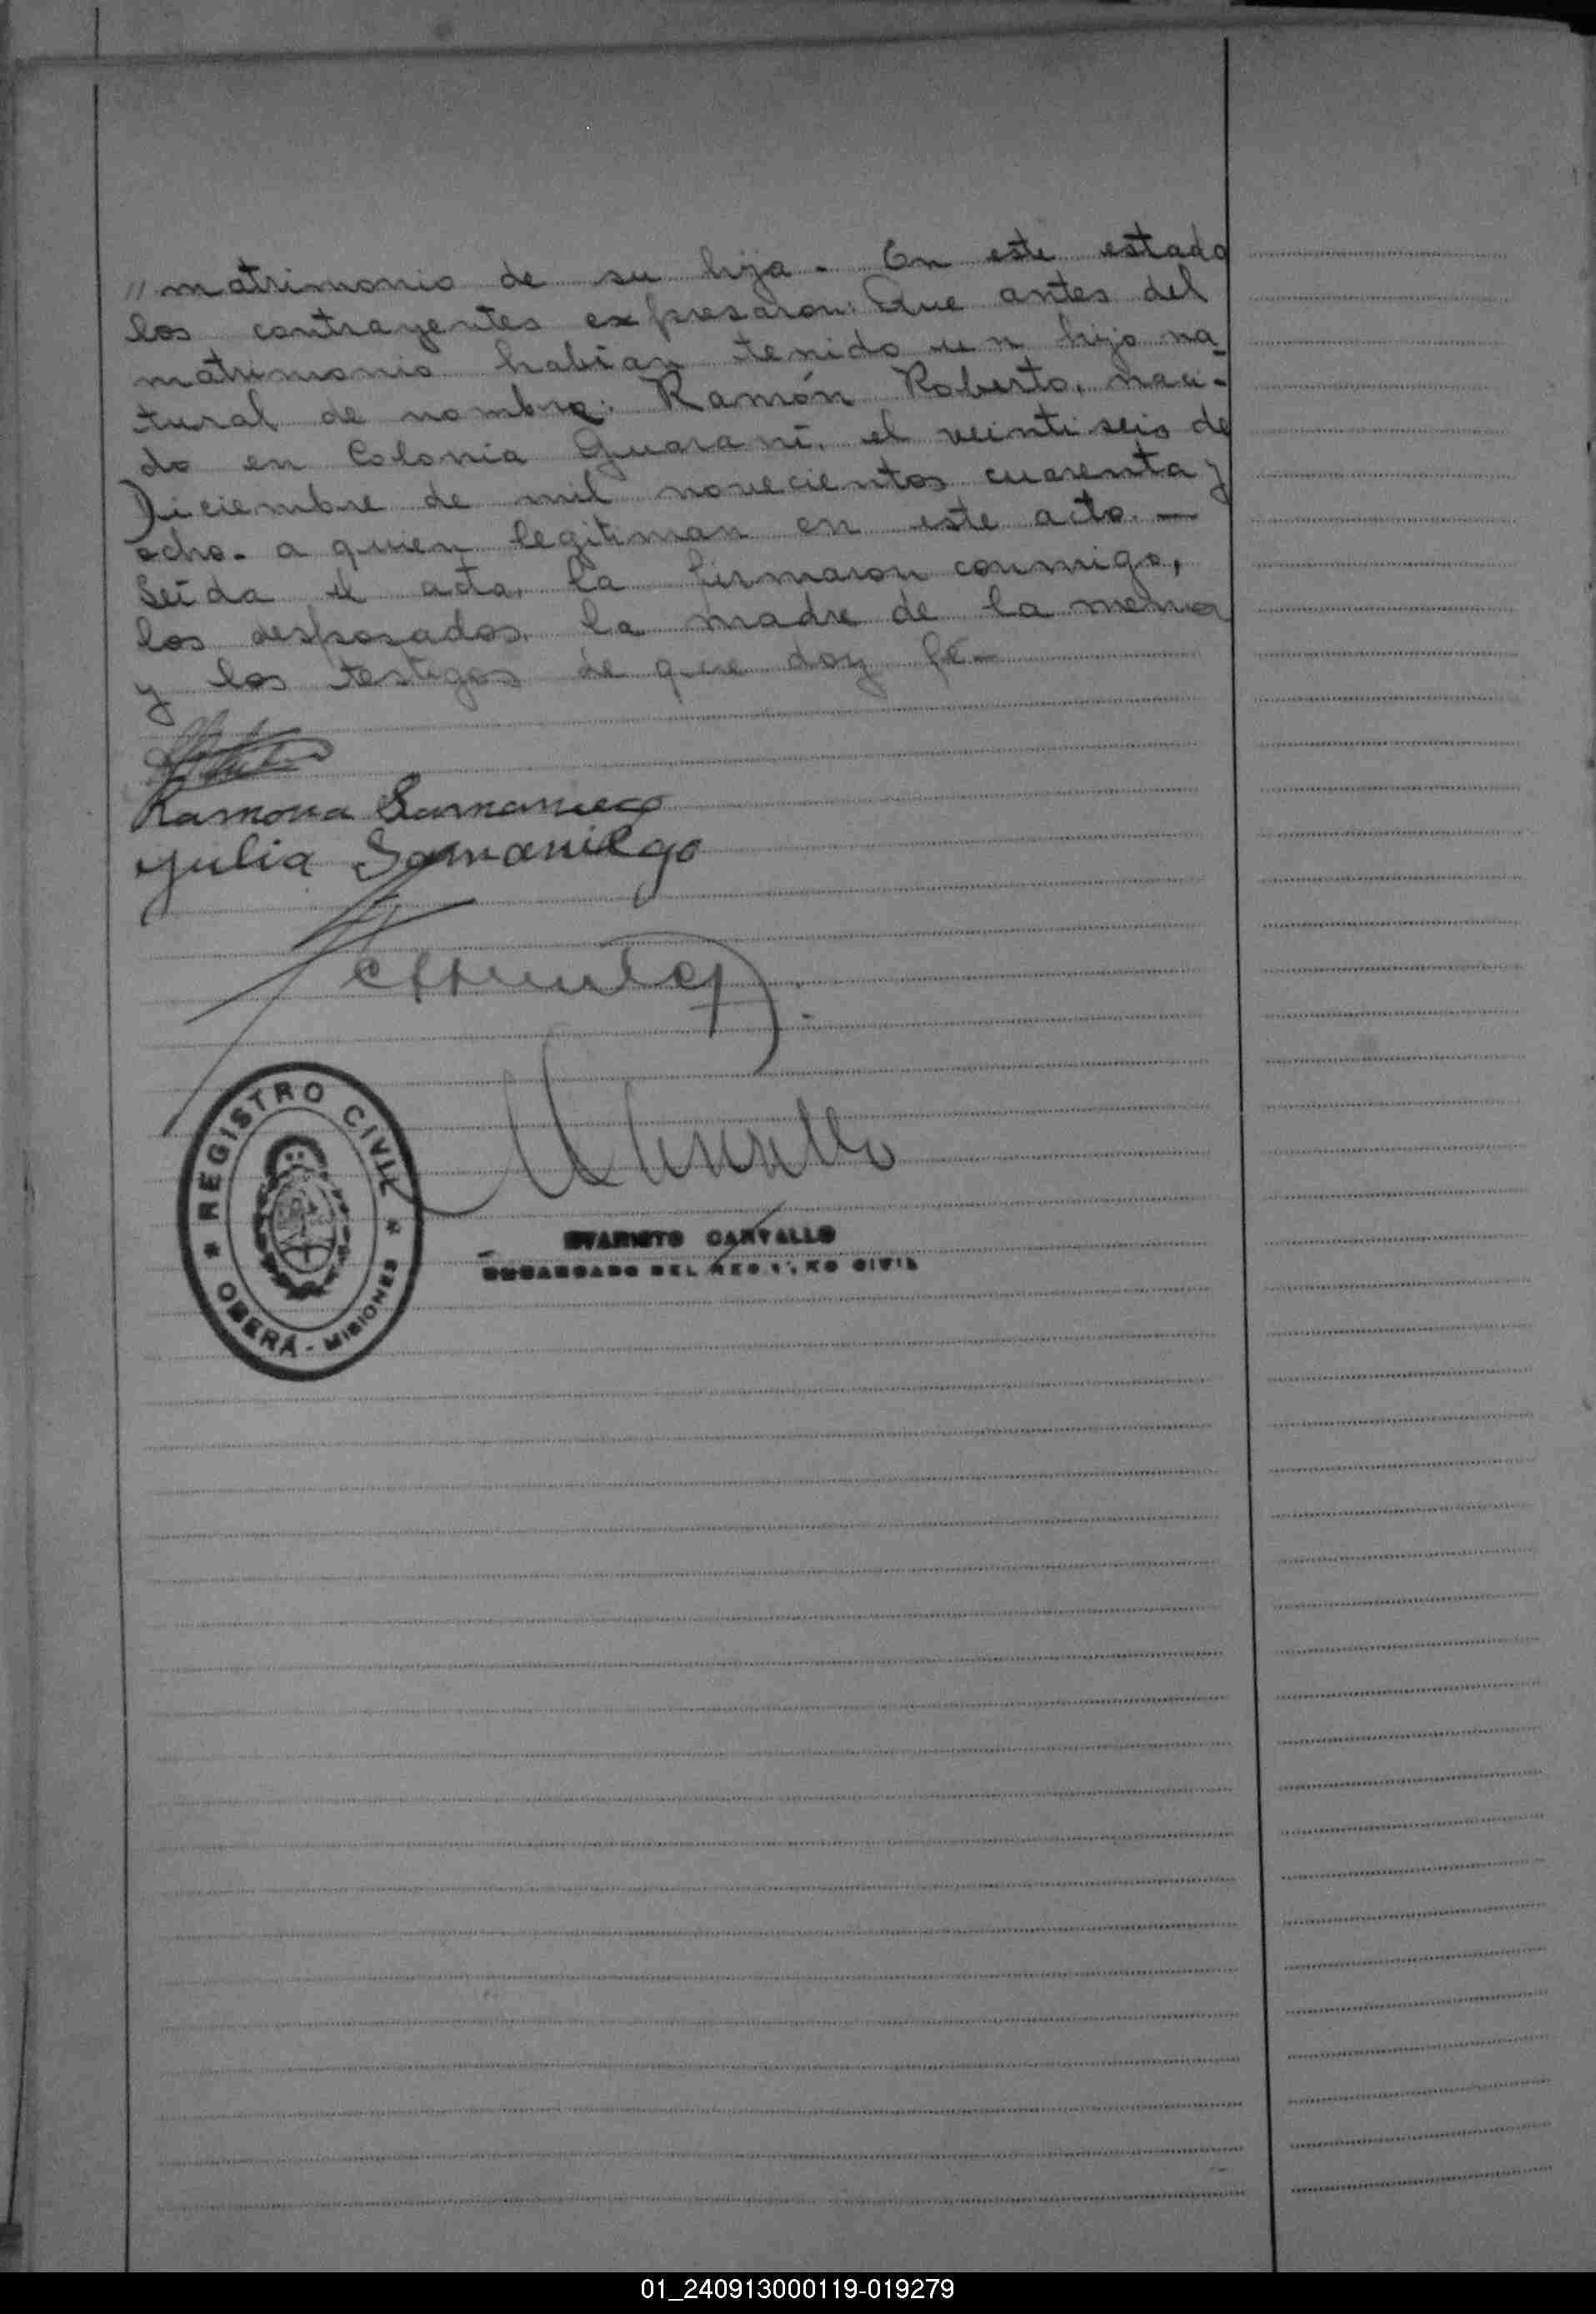 // matrimonio de su hija. En este estado
los contrayentes expresaron: Que antes del
matrimonio habían tenido un hijo na-
tural de nombre: Ramón Roberto, naci-
do en Colonia Guaraní, el veintiseis de
Diciembre de mil novecientos cuarenta y
ocho. a quien legitiman en este acto. —
Leída el acta, la firmaron conmigo,
los desposados, la madre de la menor
y los testigos de que doy fé —
Ramona Samaniego
Julia Samaniego
REGISTRO CIVIL
* OBERÁ - MISIONES *
EVARISTO CARVALLO
ENCARGADO DEL REGISTRO CIVIL
01_240913000119-019279